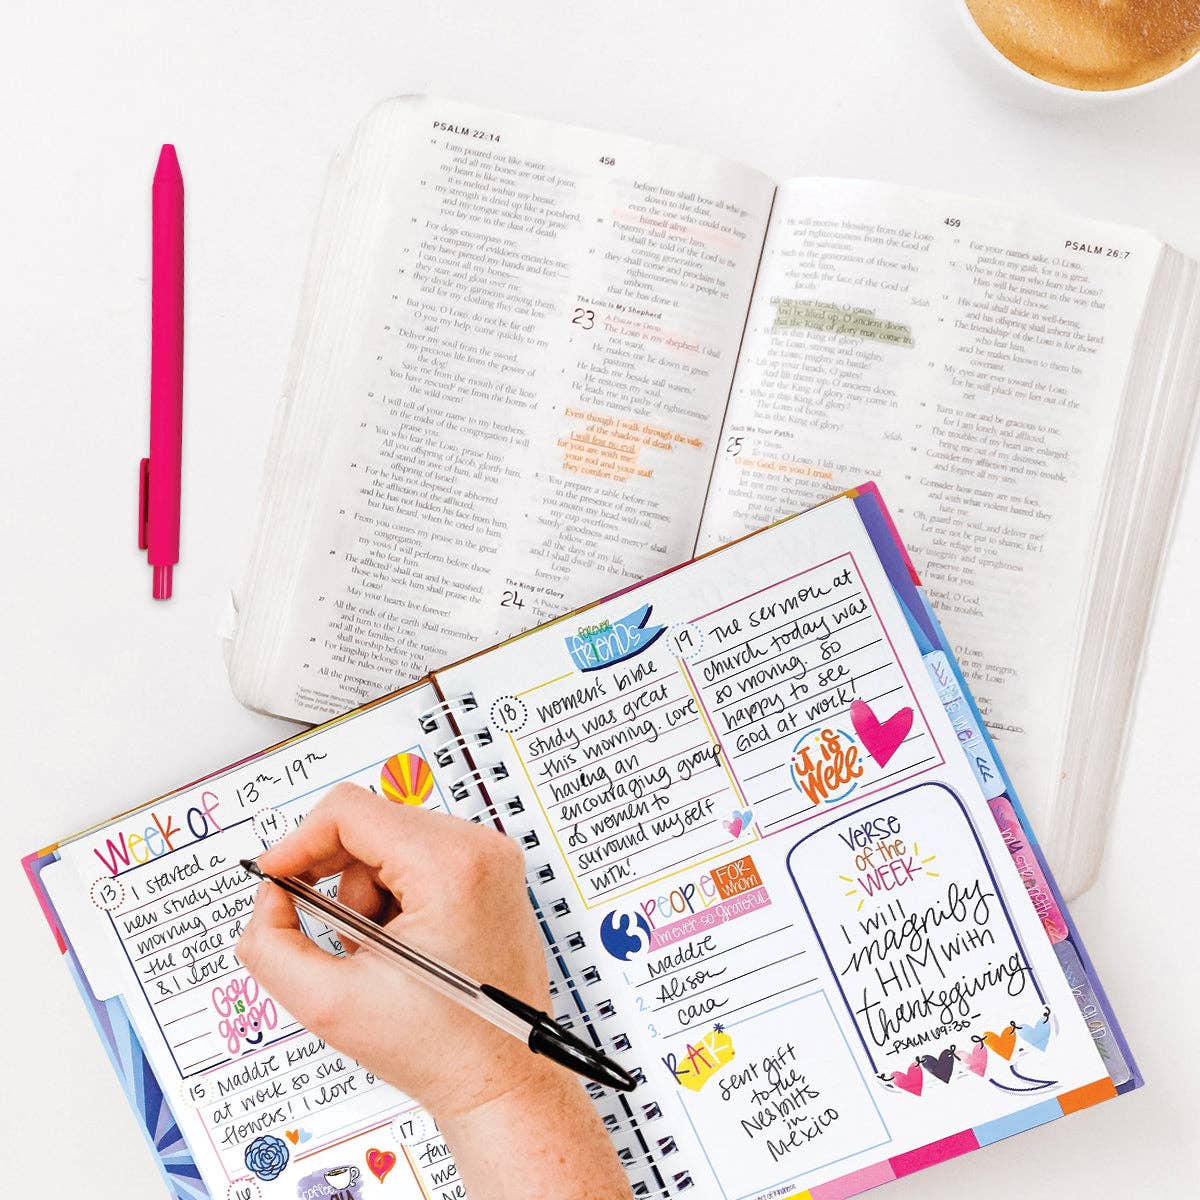 PSALM 22:14
458
14 I am poured out like water,
and all my bones are out of joint;
my heart is like wax;
it is melted within my breast;
15 my strength is dried up like a potsherd,
and my tongue sticks to my jaws;
you lay me in the dust of death.
16 For dogs encompass me;
a company of evildoers encircles me;
they have pierced my hands and feet
17 I can count all my bones—
they stare and gloat over me;
18 they divide my garments among them,
and for my clothing they cast lots.
19 But you, O LORD, do not be far off!
O you my help, come quickly to my
aid!
20 Deliver my soul from the sword,
my precious life from the power of
the dog!
21 Save me from the mouth of the lion!
You have rescued me from the horns of
the wild oxen!
22 I will tell of your name to my brothers;
in the midst of the congregation I will
praise you:
23 You who fear the LORD, praise him!
All you offspring of Jacob, glorify him,
and stand in awe of him, all you
offspring of Israel!
24 For he has not despised or abhorred
the affliction of the afflicted,
and he has not hidden his face from him,
but has heard, when he cried to him.
25 From you comes my praise in the great
congregation;
my vows I will perform before those
who fear him.
26 The afflicted shall eat and be satisfied;
those who seek him shall praise the
LORD!
May your hearts live forever!
27 All the ends of the earth shall remember
and turn to the LORD,
and all the families of the nations
shall worship before you.
28 For kingship belongs to the
and he rules over the
29 All the prosperous of
worship;
before him shall bow all who go
down to the dust,
even the one who could not keep
himself alive.
30 Posterity shall serve him;
it shall be told of the Lord to the
coming generation;
31 they shall come and proclaim his
righteousness to a people yet
unborn,
that he has done it.
The LORD Is My Shepherd
23 A PSALM OF DAVID.
The LORD is my shepherd; I shall
not want.
2 He makes me lie down in green
pastures.
He leads me beside still waters.
3 He restores my soul.
He leads me in paths of righteousness
for his name's sake.
4 Even though I walk through the valley
of the shadow of death,
I will fear no evil,
for you are with me;
your rod and your staff,
they comfort me.
5 You prepare a table before me
in the presence of my enemies;
you anoint my head with oil;
my cup overflows.
6 Surely goodness and mercy shall
follow me
all the days of my life,
and I shall dwell in the house
forever.
The King of Glory
24 A PSALM OF
The ea
459
PSALM 26:7
5 He will receive blessing from the LORD
and righteousness from the God of
his salvation.
6 Such is the generation of those who
seek him,
who seek the face of the God of
Jacob. Selah
7 Lift up your heads, O gates!
And be lifted up, O ancient doors,
that the King of glory may come in.
8 Who is this King of glory?
The LORD, strong and mighty,
the LORD, mighty in battle!
9 Lift up your heads, O gates!
And lift them up, O ancient doors,
that the King of glory may come in.
10 Who is this King of glory?
The LORD of hosts,
he is the King of glory! Selah
Teach Me Your Paths
25 OF DAVID.
To you, O LORD, I lift up my soul.
2 O my God, in you I trust;
let me not be put to shame;
let not my enemies exult
3 Indeed, none who wait
put to
they shall b
11 For your name's sake, O LORD,
pardon my guilt, for it is great.
12 Who is the man who fears the LORD?
Him will he instruct in the way that
he should choose.
13 His soul shall abide in well-being,
and his offspring shall inherit the land.
14 The friendship of the LORD is for those
who fear him,
and he makes known to them his
covenant.
15 My eyes are ever toward the LORD,
for he will pluck my feet out of the
net.
16 Turn to me and be gracious to me,
for I am lonely and afflicted.
17 The troubles of my heart are enlarged;
bring me out of my distresses.
18 Consider my affliction and my trouble,
and forgive all my sins.
19 Consider how many are my foes,
and with what violent hatred they
hate me.
20 Oh, guard my soul, and deliver me!
Let me not be put to shame, for I
take refuge in you.
21 May integrity and uprightness
preserve me,
for I wait for you.
Israel, O God,
his troubles.
Week of 13th-19th
13 I started a
new study this
morning abou
the grace of
& I love i
GOD is good
14
15 Maddie knew
at work so she
flowers! I love
16
coffee
17
18 Women's bible
study was great
this morning. Love
having an
encouraging group
of women to
surround myself
with!
forever friends
19 The sermon at
church today was
so moving. So
happy to see
God at work!
it is Well
3 People FOR whom
I'm ever-so grateful!
1. Maddie
2. Alison
3. Cara
R.A.K
Sent gift
to the
Nesbitt's
in
Mexico
Verse
of the
Week
I will
magnify
HIM with
thanksgiving
-PSALM 69:30-
my strength
be glad